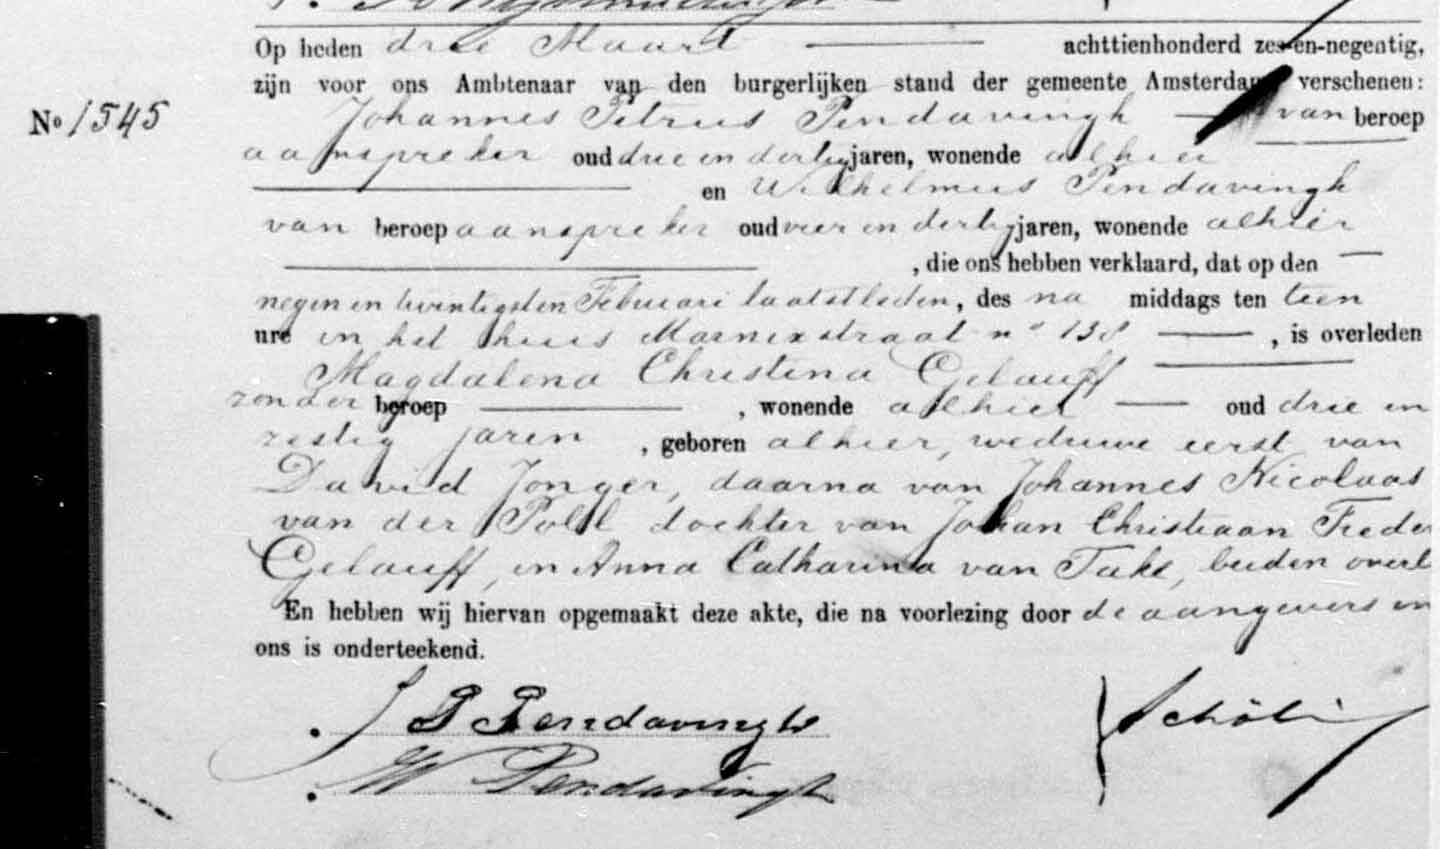 Op heden drie Maart achttienhonderd zes-en-negentig,
zijn voor ons Ambtenaar van den burgerlijken stand der gemeente Amsterdam verschenen:
No 1545
Johannes Petrus Pendavingh van beroep
aanspreker oud drie en dertig jaren, wonende alhier
en Wilhelmus Pendavingh
van beroep aanspreker oud vier en dertig jaren, wonende alhier
, die ons hebben verklaard, dat op den
negen en twintigsten Februari laatstleden, des na middags ten tien
ure in het huis Marnixstraat no 138 , is overleden
Magdalena Christina Gelauff
zonder beroep , wonende alhier oud drie en
zestig jaren , geboren alhier, weduwe eerst van
David Jonger, daarna van Johannes Nicolaas
van der Poll dochter van Johan Christiaan Freder
Gelauff, en Anna Catharina van Take, beiden overl
En hebben wij hiervan opgemaakt deze akte, die na voorlezing door de aangevers en
ons is onderteekend.
J P Pendavingh
W Pendavingh